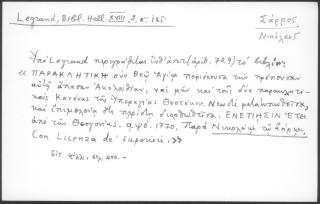 Legrand, Bibl. Hell. XVIII 2, σ. 125.
Σάρρος
Νικόλαος
Ὑπὸ Legrand περιγράφεται (ἀριθ. 729) τὸ βιβλίον:
«ΠΑΡΑΚΛΗΤΙΚΗ σὺν Θεῷ Ἁγίῳ περιέχουσα τὴν πρέπουσαν
αὐτῇ ἅπασαν Ἀκολουθίαν, ναὶ μὴν καὶ τοὺς δύο παρακλητι-
κοὺς Κανόνας τῆς Ὑπεραγίας Θεοτόκου. Νεωστὶ μετατυπωθεῖσα,
καὶ ἐπιμελείᾳ διορθωθεῖσα. ΕΝΕΤΙΗΣΙΝ ΕΤΕΙ
ἀπὸ τῆς Θεογονίας. αψο. 1770. Παρὰ Νικολάῳ τῷ Σάρῳ.
Con Licenza de' Superiori.»
Εἰς φύλλ., σελ. 400.—